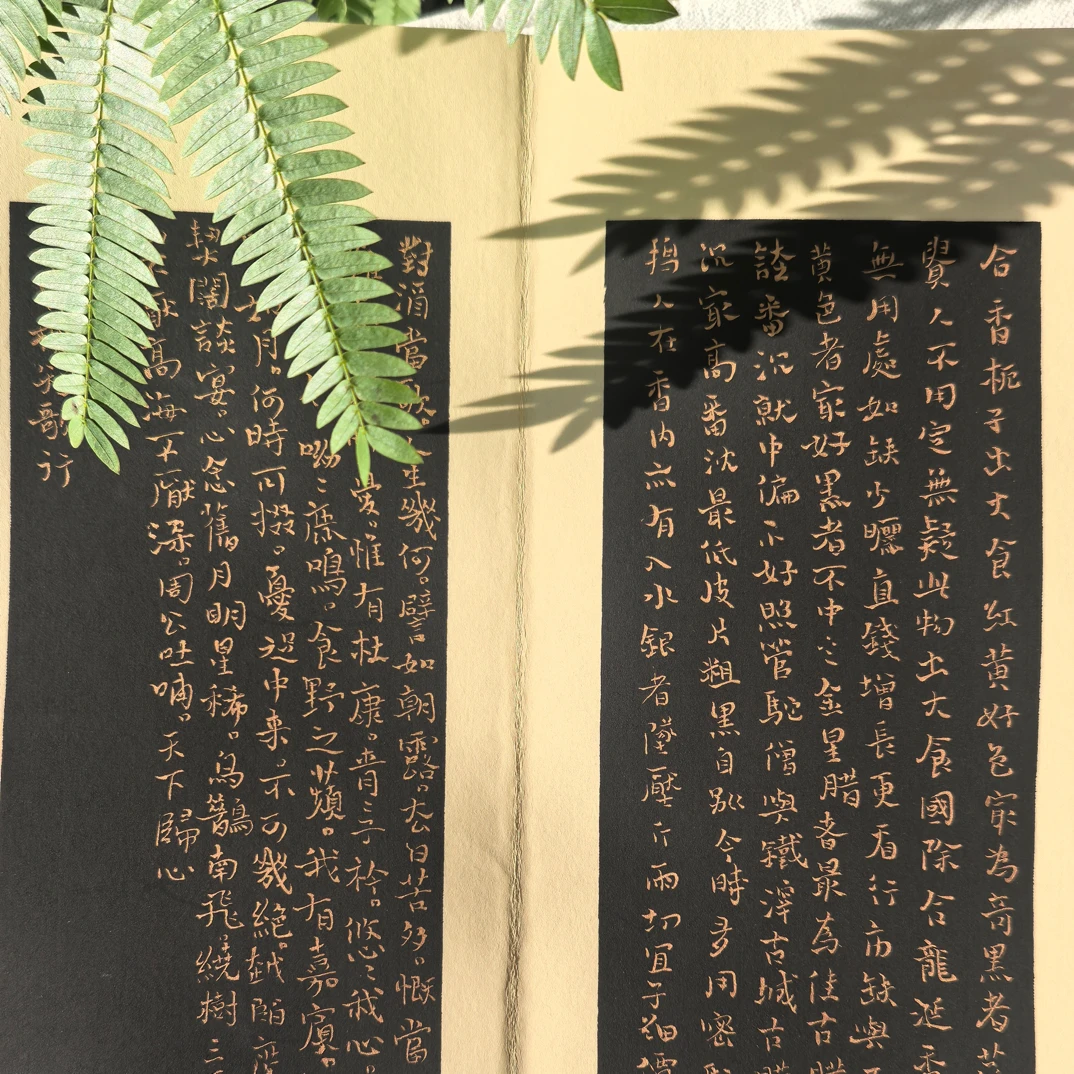 合香梔子出大食紅黃好色最為奇黑者
賓人不用定無疑此物出大食國除合龍涎香
無用處如缺少曬直錢增長更看行市缺與
黃色者最好黑者不中之金星腊者最為佳古腊
注番沉就中偏不好照管駝僧與鐵滓古城古腊
沉最高番沈最低皮片粗黑自別今時多用密
搗人在香內亦有入水銀者墜壓斤兩切宜子細
對酒當歌人生幾何譬如朝露去日苦多慨當
憂惟有杜康青三子衿悠之我心
呦之鹿鳴食野之蘋我有嘉賓
月何時可掇憂從中来不可幾絕越陌
契闊談宴心念舊月明星稀烏鵲南飛繞樹三
高海不厭深周公吐哺天下歸心
歌行